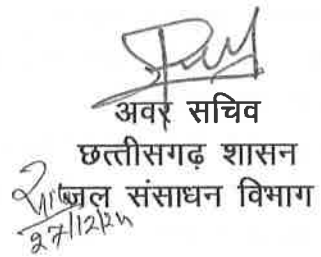 अवर सचिव
छत्तीसगढ़ शासन
जल संसाधन विभाग
27/12/24